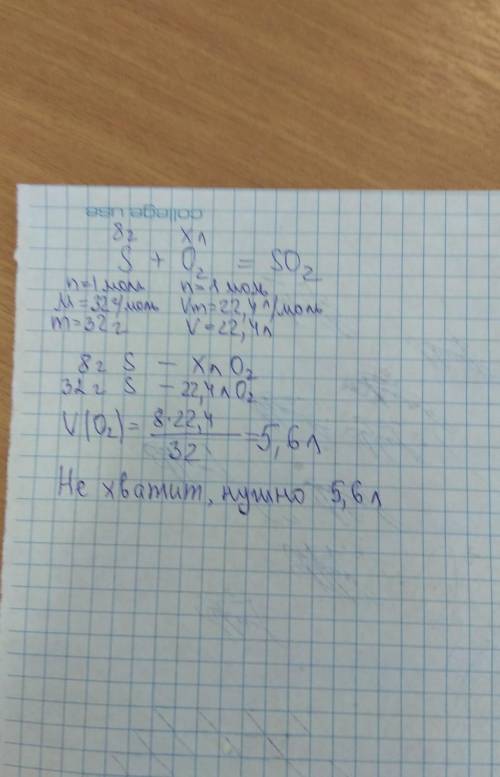 college use
8г хл
S + O₂ = SO₂
n=1моль n=1моль
M=32г/моль Vm=22,4л/моль
m=32г V=22,4л
8г S — XлO₂
32г S — 22,4лO₂
V(O₂)= 8·22,4 / 32 =5,6л
Не хватит, нужно 5,6л